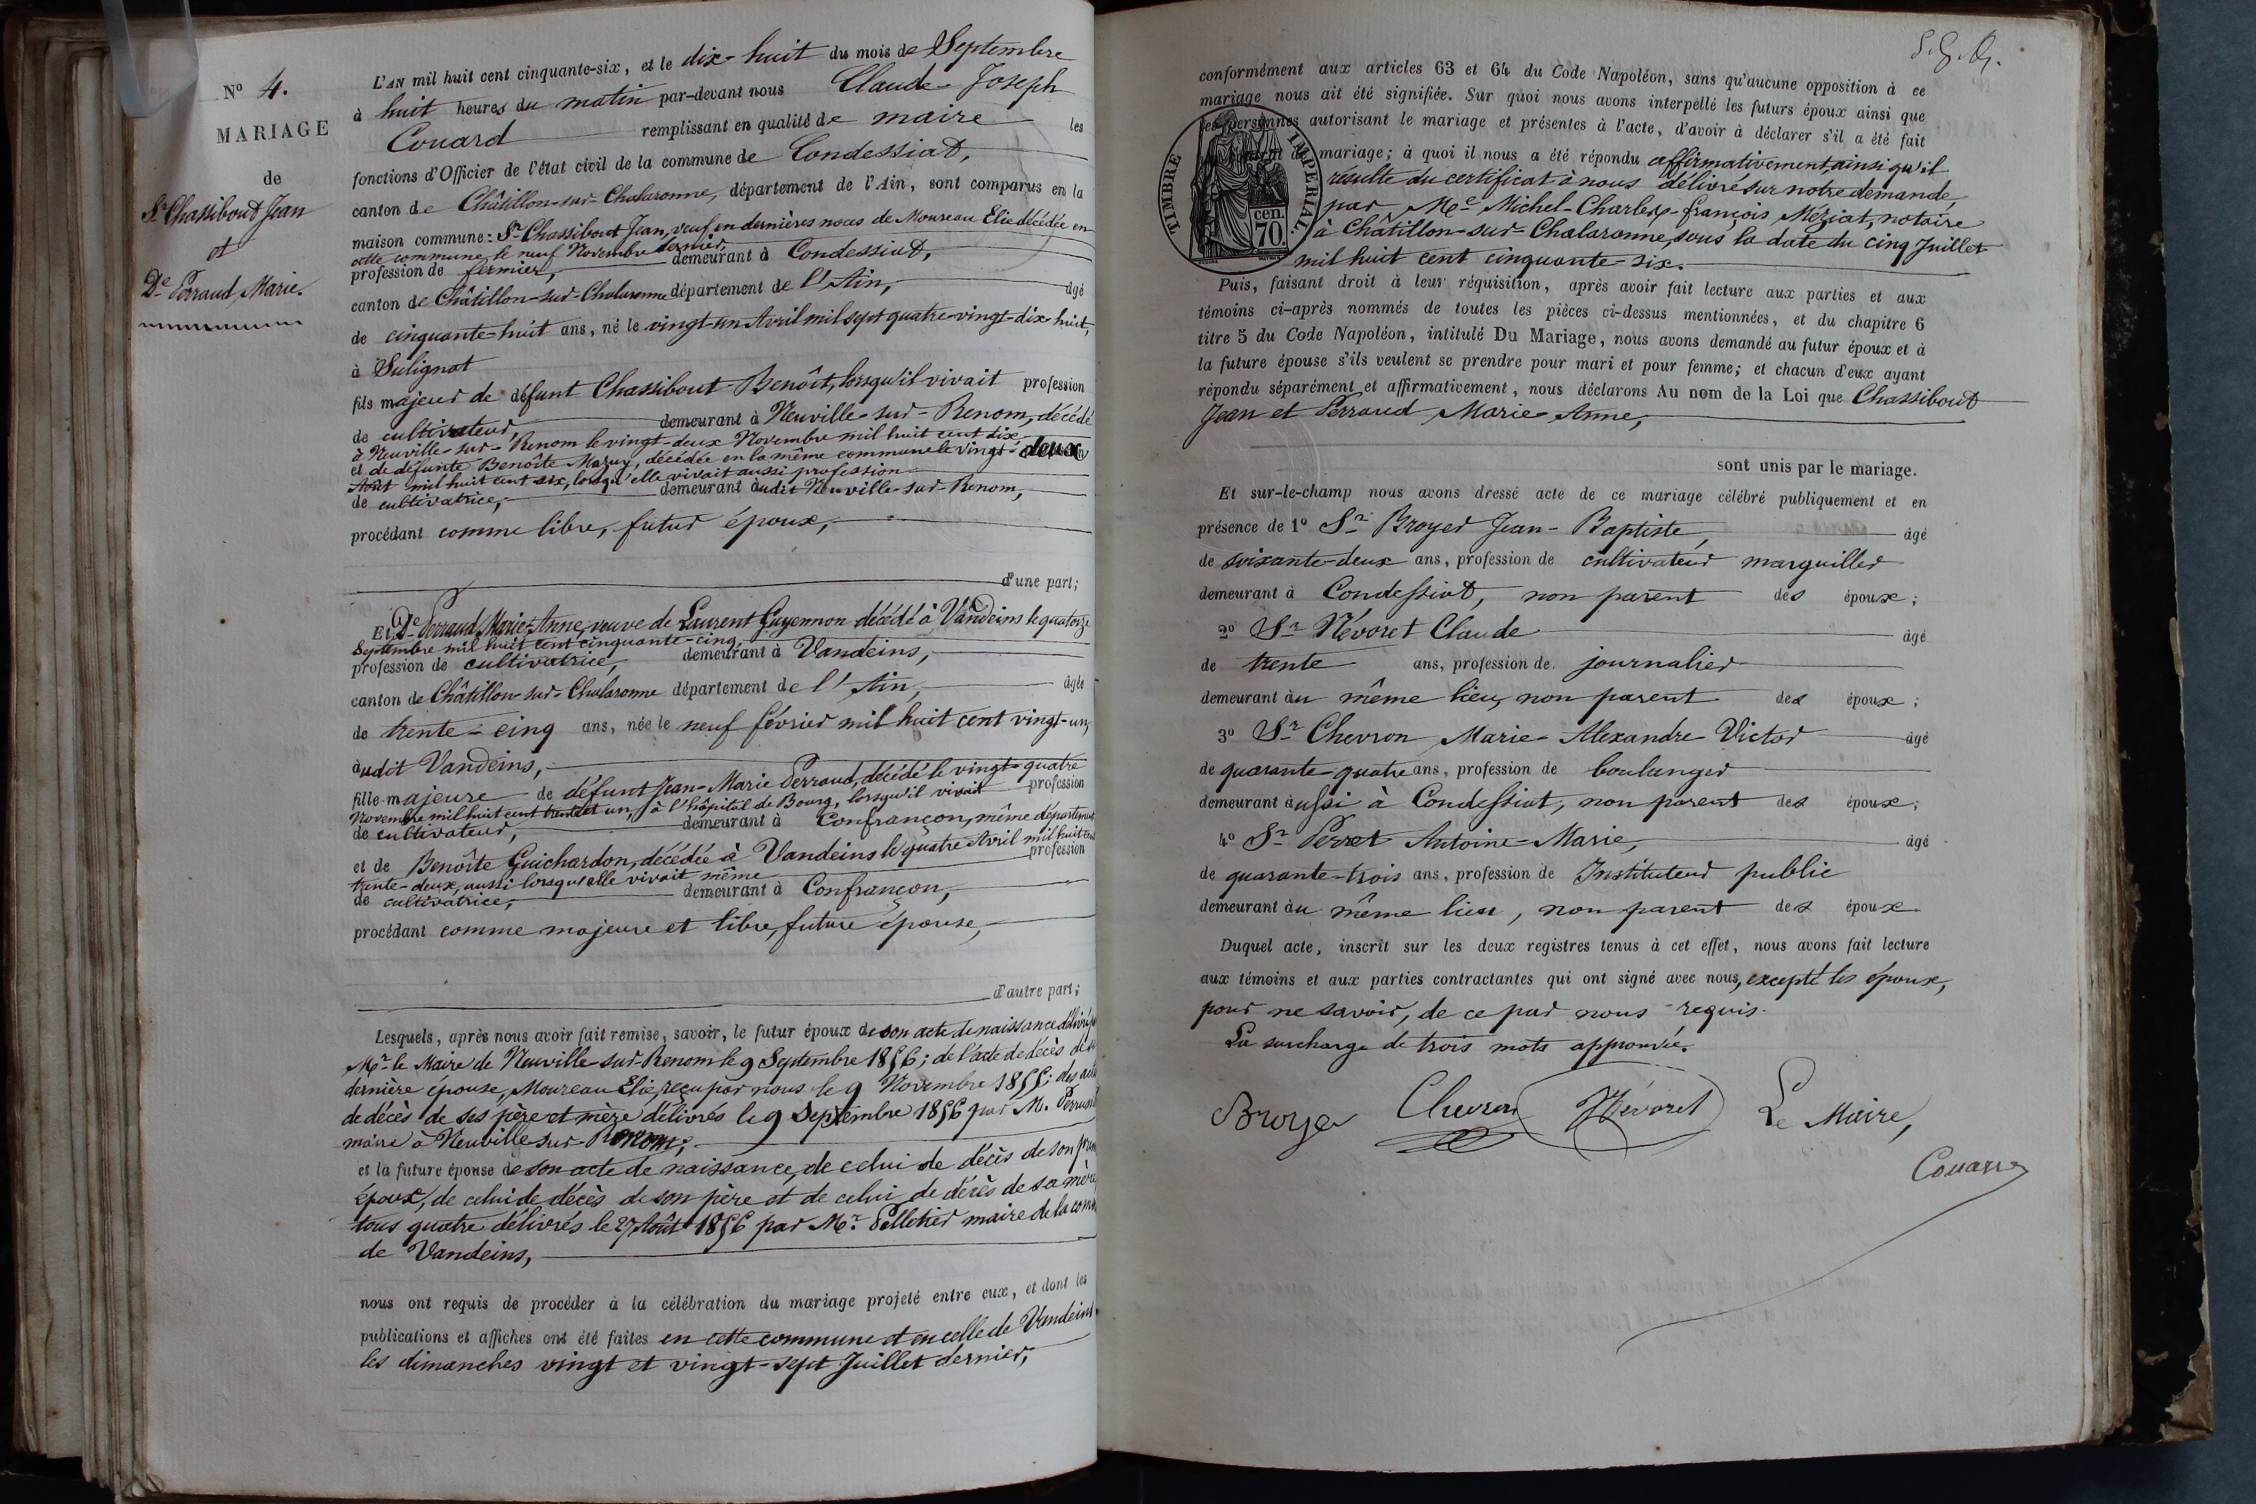 N° 4.
MARIAGE
de
Sr Chassibout Jean
et
De Perraud Marie.
L'AN mil huit cent cinquante-six, et le dix-huit du mois de Septembre
à huit heures du matin par-devant nous Claude-Joseph
Couard remplissant en qualité de maire les
fonctions d'Officier de l'état civil de la commune de Condessiat,
canton de Châtillon-sur-Chalaronne, département de l'Ain, sont comparus en la
maison commune: Sr Chassibout Jean, veuf en dernières noces de Moureau Elie décédée en
cette commune, le neuf Novembre dernier,
profession de fermier, demeurant à Condessiat,
canton de Châtillon-sur-Chalaronne département de l'Ain, âgé
de cinquante-huit ans, né le vingt-un Avril mil sept quatre-vingt-dix-huit,
à Sulignat
fils majeur de défunt Chassibout Benoît, lorsqu'il vivait profession
de cultivateur, demeurant à Neuville-sur-Renom, décédé
à Neuville-sur-Renom le vingt-deux Novembre mil huit cent dix,
et de défunte Benoîte Mazuy, décédée en la même commune le vingt-deux
Août mil huit cent six, lorsqu'elle vivait aussi profession
de cultivatrice, demeurant audit Neuville-sur-Renom,
procédant comme libre, futur époux,
d'une part;
Et De Perraud Marie-Anne, veuve de Laurent Guyennon décédé à Vandeins le quatorze
Septembre mil huit cent cinquante-cinq
profession de cultivatrice, demeurant à Vandeins,
canton de Châtillon-sur-Chalaronne département de l'Ain, âgée
de trente-cinq ans, née le neuf février mil huit cent vingt-un,
audit Vandeins,
fille majeure de défunt Jean-Marie Perraud, décédé le vingt-quatre
Novembre mil huit cent trente et un, à l'hôpital de Bourg, lorsqu'il vivait profession
de cultivateur, demeurant à Confrançon, même département
et de Benoîte Guichardon, décédée à Vandeins le quatre Avril mil huit cent
trente-deux, aussi lorsqu'elle vivait même profession
de cultivatrice, demeurant à Confrançon,
procédant comme majeure et libre, future épouse,
d'autre part;
Lesquels, après nous avoir fait remise, savoir, le futur époux de son acte de naissance délivré
Mr le Maire de Neuville-sur-Renom le 9 Septembre 1856; de l'acte de décès de sa
dernière épouse, Moureau Elie, reçu par nous le 9 Novembre 1855; des actes
de décès de ses père et mère délivrés le 9 Septembre 1856 par M.
maire à Neuville sur-Renom;
et la future épouse de son acte de naissance, de celui de décès de son
époux, de celui de décès de son père et de celui de décès de sa mère
tous quatre délivrés le 27 Août 1856 par Mr Pelletier maire de la
de Vandeins,
nous ont requis de procéder à la célébration du mariage projeté entre eux, et dont les
publications et affiches ont été faites en cette commune et en celle de Vandeins
les dimanches vingt et vingt-sept Juillet dernier,
conformément aux articles 63 et 64 du Code Napoléon, sans qu'aucune opposition à ce
mariage nous ait été signifiée. Sur quoi nous avons interpellé les futurs époux ainsi que
les personnes autorisant le mariage et présentes à l'acte, d'avoir à déclarer s'il a été fait
de mariage; à quoi il nous a été répondu affirmativement, ainsi qu'il
résulte du certificat à nous délivré sur notre demande,
par Me Michel-Charles-françois Méziat, notaire
à Châtillon-sur-Chalaronne, sous la date du cinq Juillet
mil huit cent cinquante-six.
TIMBRE IMPERIAL
cen. 70.
Puis, faisant droit à leur réquisition, après avoir fait lecture aux parties et aux
témoins ci-après nommés de toutes les pièces ci-dessus mentionnées, et du chapitre 6
titre 5 du Code Napoléon, intitulé Du Mariage, nous avons demandé au futur époux et à
la future épouse s'ils veulent se prendre pour mari et pour femme; et chacun d'eux ayant
répondu séparément et affirmativement, nous déclarons Au nom de la Loi que Chassibout
Jean et Perraud Marie-Anne,
sont unis par le mariage.
Et sur-le-champ nous avons dressé acte de ce mariage célébré publiquement et en
présence de 1° Sr Broyer Jean-Baptiste, âgé
de soixante-deux ans, profession de cultivateur marguiller
demeurant à Condessiat, non parent des époux;
2° Sr Névoret Claude âgé
de trente ans, profession de journalier
demeurant au même lieu, non parent des époux;
3° Sr Chevron Marie-Alexandre-Victor âgé
de quarante-quatre ans, profession de boulanger
demeurant aussi à Condessiat, non parent des époux;
4° Sr Perret Antoine-Marie, âgé
de quarante-trois ans, profession de Instituteur public
demeurant au même lieu, non parent des époux
Duquel acte, inscrit sur les deux registres tenus à cet effet, nous avons fait lecture
aux témoins et aux parties contractantes qui ont signé avec nous, excepté les époux,
pour ne savoir, de ce par nous requis.
La surcharge de trois mots approuvée.
Broyer Chevron Névoret Le Maire,
Couard